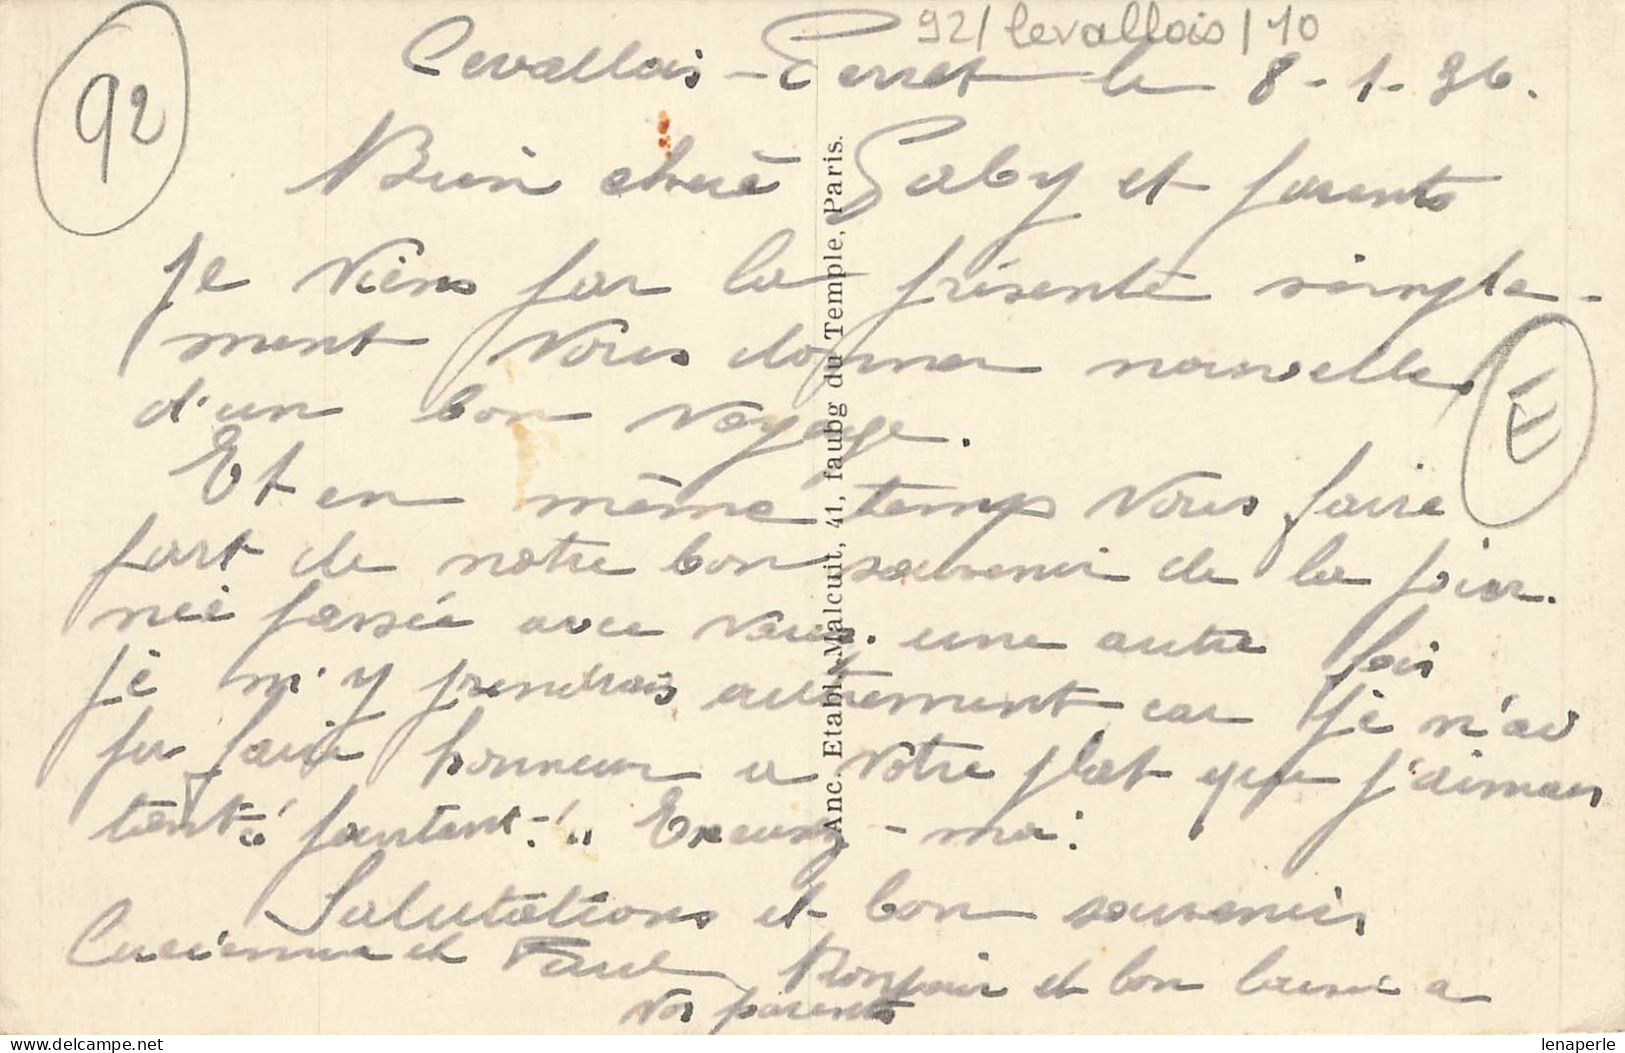 92/levallois/10
92
Levallois-Perret le 8-1-36.
Bien chère Gaby et parents
je viens par la présente simple-
ment vous donner nouvelles
d'un bon voyage.
E
Et en même temps vous faire
part de notre bon souvenir de la jour.
née passée avec vous. une autre fois
je m'y prendrais autrement car je n'ai
pu faire honneur a votre plat que j'aimais
tant: Excusez-moi:
Salutations et bon souvenir
Lucienne et Paul Bonjour et bon baiser a
vos parents
Anc. Etabl. Malcuit, 41, faubg du Temple, Paris.
lenaperle